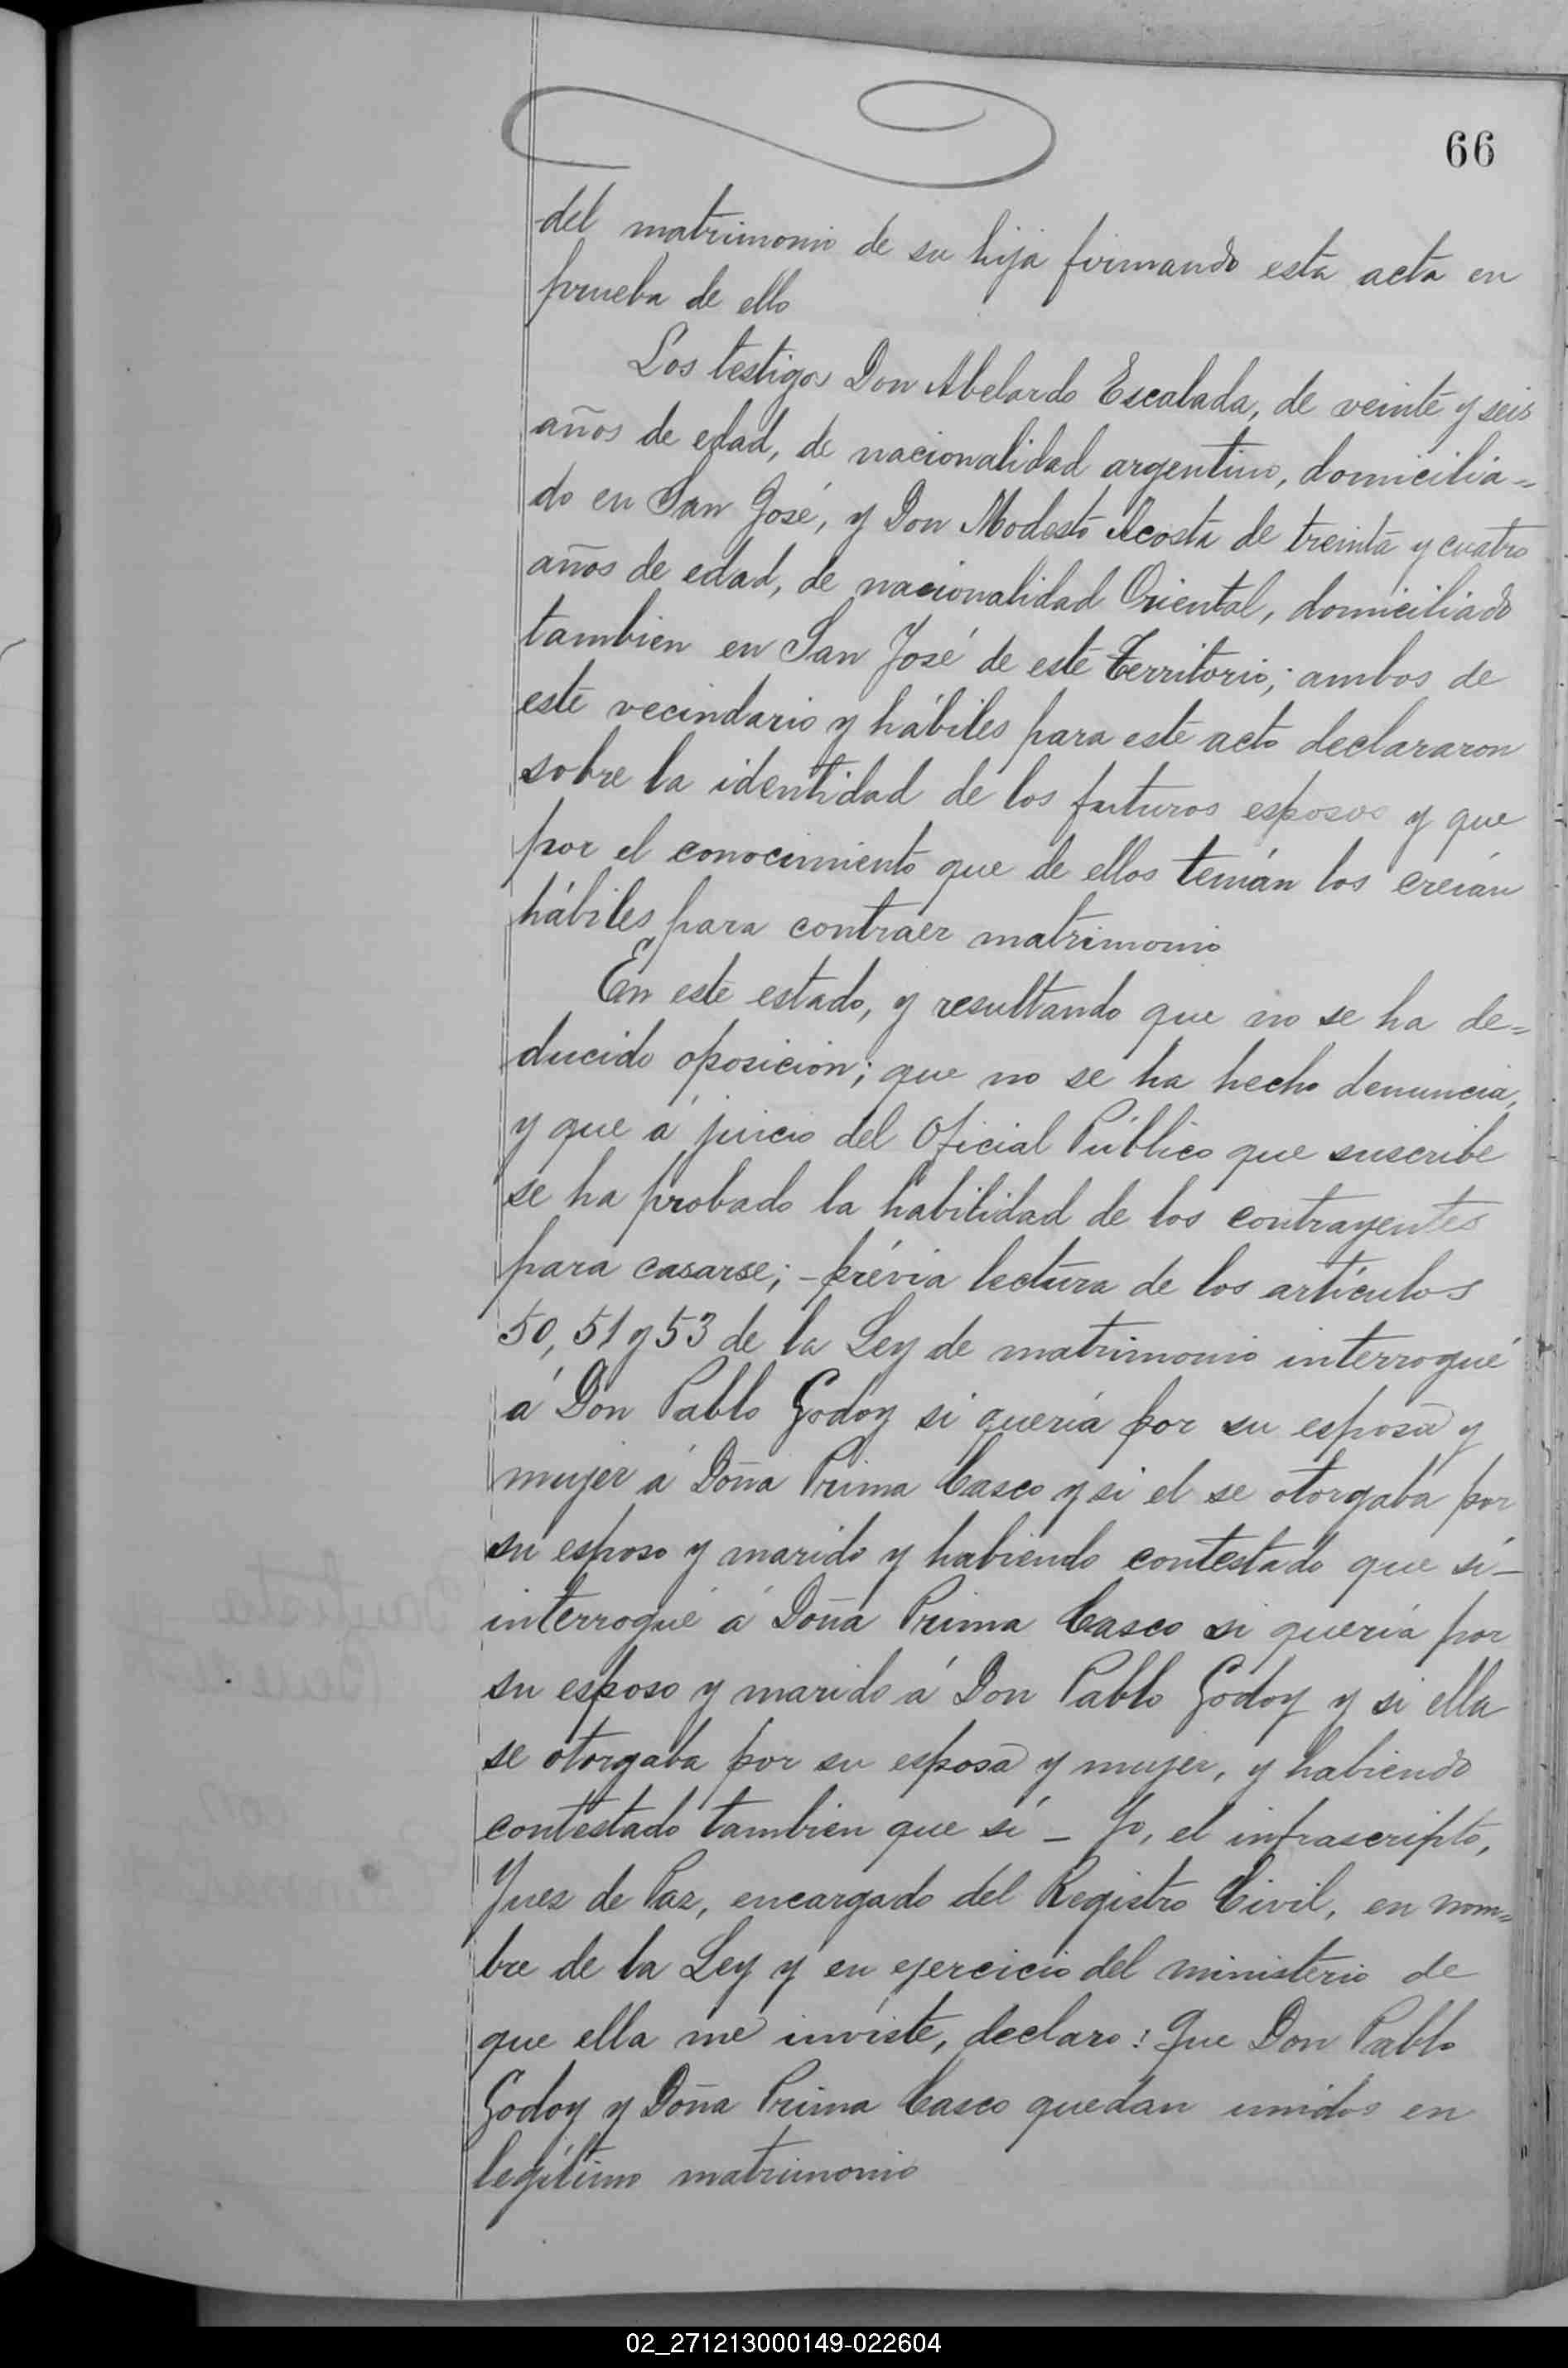 66
del matrimonio de su hija firmando esta acta en
prueba de ello
Los testigos Don Abelardo Escalada, de veinte y seis
años de edad, de nacionalidad argentino, domicilia=
do en San José, y Don Modesto Acosta de treinta y cuatro
años de edad, de nacionalidad Oriental, domiciliado
tambien en San José de este Territorio; ambos de
este vecindario y hábiles para este acto declararon
sobre la identidad de los futuros esposos y que
por el conocimiento que de ellos tenián los creián
hábiles para contraer matrimonio
En este estado, y resultando que no se ha de=
ducido oposición; que no se ha hecho denuncia,
y que á juicio del Oficial Público que suscribe
se ha probado la habilidad de los contrayentes
para casarse; - prévia lectura de los artículos
50, 51 y 53 de la Ley de matrimonio interrogué
á Don Pablo Godoy si quería por su esposa y
mujer á Doña Prima Casco y si el se otorgaba por
su esposo y marido y habiendo contestado que sí -
interrogué á Doña Prima Casco si quería por
su esposo y marido á Don Pablo Godoy y si ella
se otorgaba por su esposa y mujer, y habiendo
contestado tambien que sí - Yo, el infrascripto,
Juez de Paz, encargado del Registro Civil, en nom=
bre de la Ley y en ejercicio del ministerio de
que ella me inviste, declaro: Que Don Pablo
Godoy y Doña Prima Casco quedan unidos en
legítimo matrimonio
02_271213000149-022604